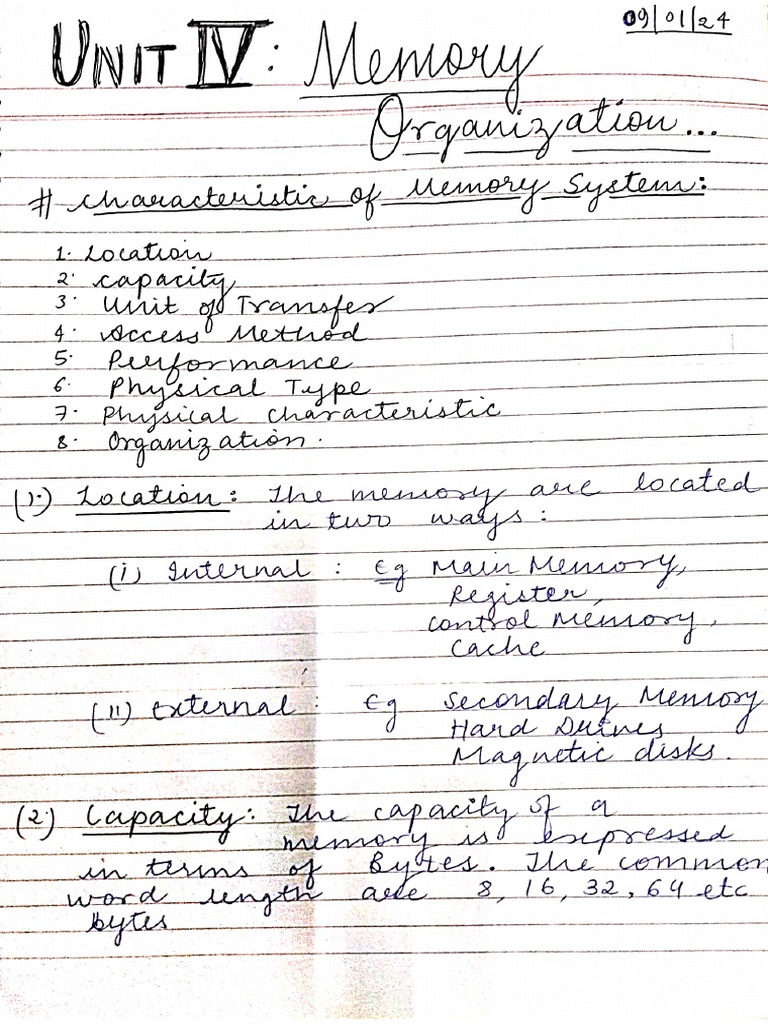 09/01/24
UNIT IV: Memory
Organization...
# Characteristic of Memory System:
1. Location
2. Capacity
3. Unit of Transfer
4. Access Method
5. Performance
6. Physical Type
7. Physical Characteristic
8. Organization.
(1.) Location: The memory are located
in two ways:
(i) Internal : Eg Main Memory,
Register,
Control Memory,
Cache
(ii) External : Eg Secondary Memory
Hard Drives
Magnetic disks.
(2.) Capacity: The capacity of a
memory is expressed
in terms of Bytes. The common
word length are 8, 16, 32, 64 etc
bytes